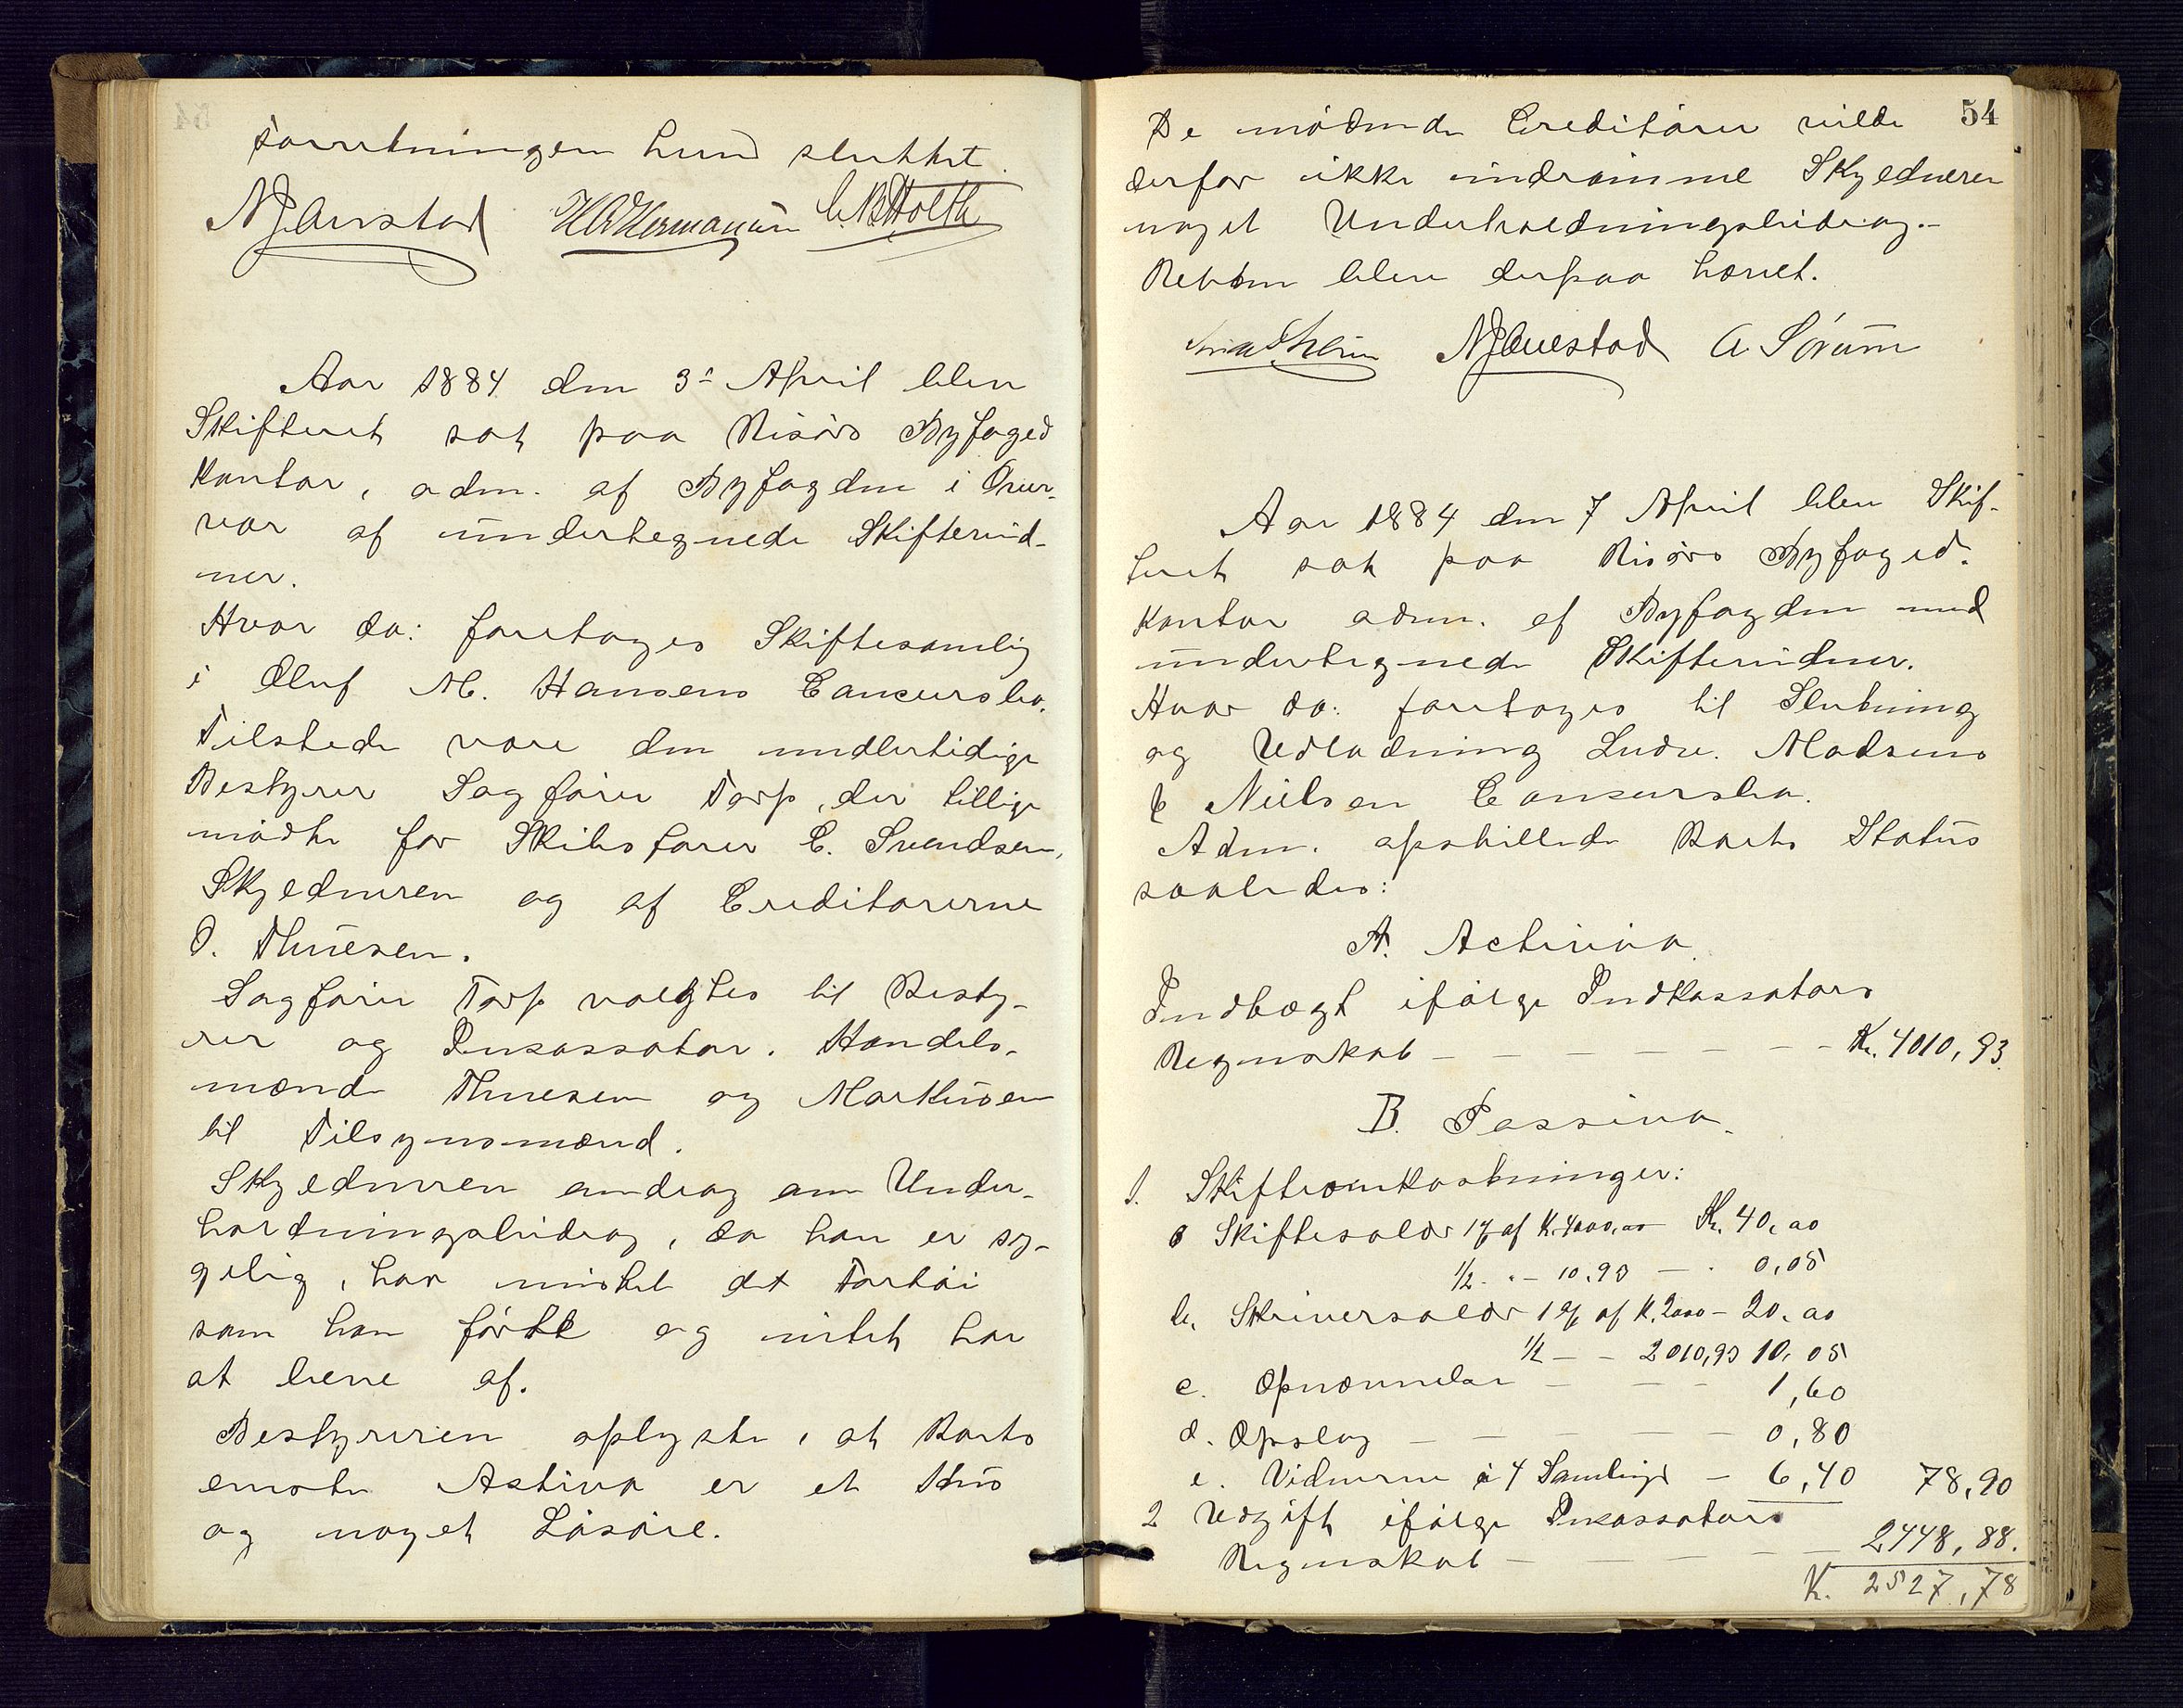 Forretningen hermed sluttet.
NJAuestad C.B. Holth
Aar 1884 den 3' April blev
Skifteret sat paa Risörs Byfoged
kontor, adm. af Byfogden i Over-
vær af undertegnede Skiftevid-
ner.
Hvor da: foretoges Skiftesamling
i Oluf M. Hansens Concursbo.
Tilstede vare den midlertidige
Bestyrer Sagförer Torp, der tillige
mödte for Skibsförer C. Svendsen,
Skyldneren og af Creditorerne
O. Thuesen.
Sagförer Torp valgtes til Besty-
rer og Incassator. Handels-
mænd Thuesen og Markusen
til Tilsynsmænd.
Skyldneren androg om Under-
holdningsbidrag, da han er sy-
gelig, har mistet det Fartöi
som han förte og intet har
at leve af.
Bestyreren oplyste, at Boets
eneste Activa er et Hus
og noget Lösöre.
54
De mödende Creditorer vilde
derfor ikke indrömme Skyldneren
noget Underholdningsbidrag.-
Retten blev derpaa hævet.
NJAuestad A. Sörum
Aar 1884 den 7 April blev Skif-
teret sat paa Risörs Byfoged-
kontor adm. af Byfogden med
undertegnede Skiftevidner.
Hvor da: foretoges til Slutning
og Udlodning Ludv. Madsens
& Nielsen Concursbo.
Adm. opstillede Boets Status
saaledes:
A. Activa.
Indbragt ifölge Indkassators
Regnskab - - - - - - - Kr. 4010,93.
B. Passiva.
1. Skifteomkostninger:
a Skiftesalær 1% af K. 4000,00 Kr. 40,00
1/2 - " - 10,93 - - 0,05
b. Skriversalær 1% af K. 2000 - 20,00
1/2 - - 2010,93 10,05
c. Opnævnelse - - - 1,60
d. Opslag - - - - - 0,80
e. Vidnerne i 4 Samlinger - 6,40 78,90
2 Udgift ifölge Incassators
Regnskab - - - - - 2448,88.
K. 2527,78